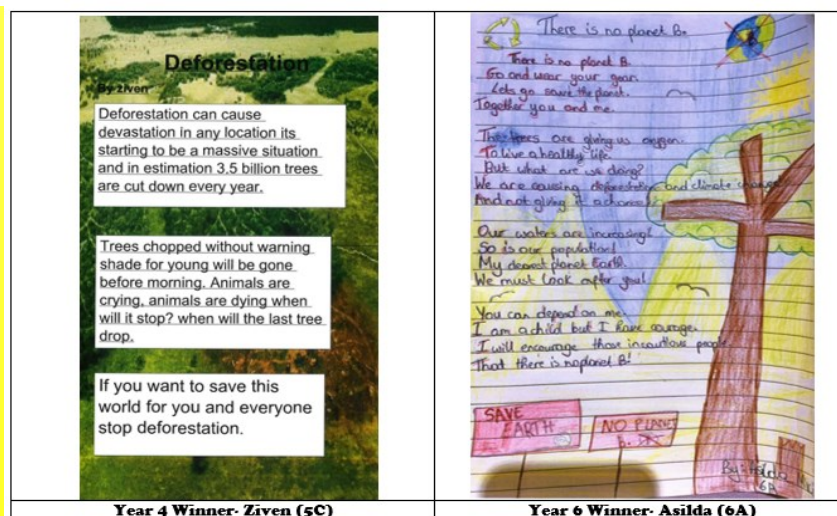 Deforestation
By ziven
Deforestation can cause
devastation in any location its
starting to be a massive situation
and in estimation 3.5 billion trees
are cut down every year.
Trees chopped without warning
shade for young will be gone
before morning. Animals are
crying, animals are dying when
will it stop? when will the last tree
drop.
If you want to save this
world for you and everyone
stop deforestation.
Year 4 Winner- Ziven (5C)
There is no planet B.
There is no planet B.
Go and wear your gear.
Lets go save the planet.
Together you and me.
The trees are giving us oxygen.
To live a healthy life.
But what are we doing?
We are causing deforestation and climate change
And not giving it a chance
Our waters are increasing!
So is our population!
My dearest planet Earth.
We must look after you!
You can depend on me.
I am a child but I have courage.
I will encourage those incautious people
That there is no planet B!
SAVE
EARTH
NO PLANET
B.
By: Asilda
6A
Year 6 Winner- Asilda (6A)